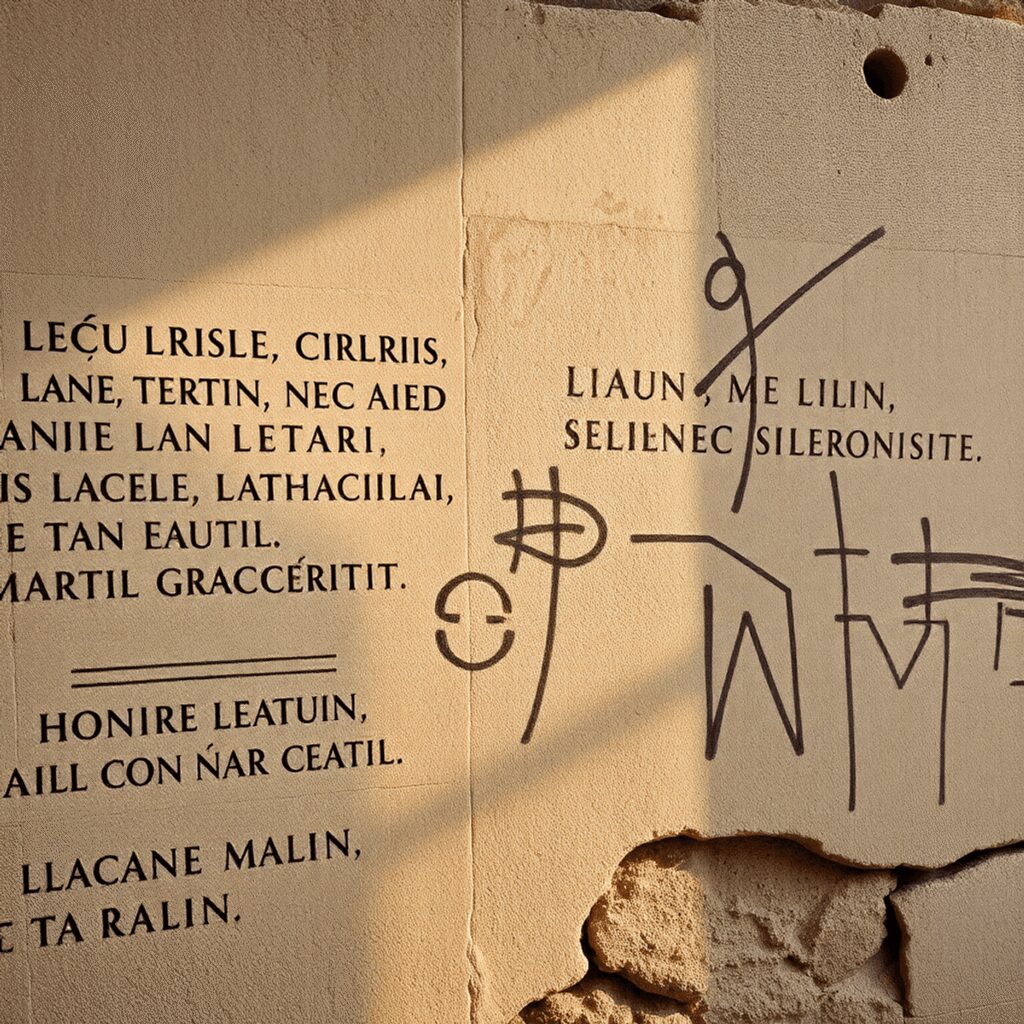 LEḈU LRISLE, CIRLRIIS,
LANE, TERTIN, NEC AIED
ANIIE LAN LETARI,
IS LACELE, LATHACIILAI,
E TAN EAUTIL.
MARTIL GRACCÉRITIT.
HONIRE LEATUIN,
AILL CON ŃAR CEATIL.
LLACANE MALIN,
TA RALIN.
LIAUN, ME LILIN,
SELIENEC SILERONISITE.